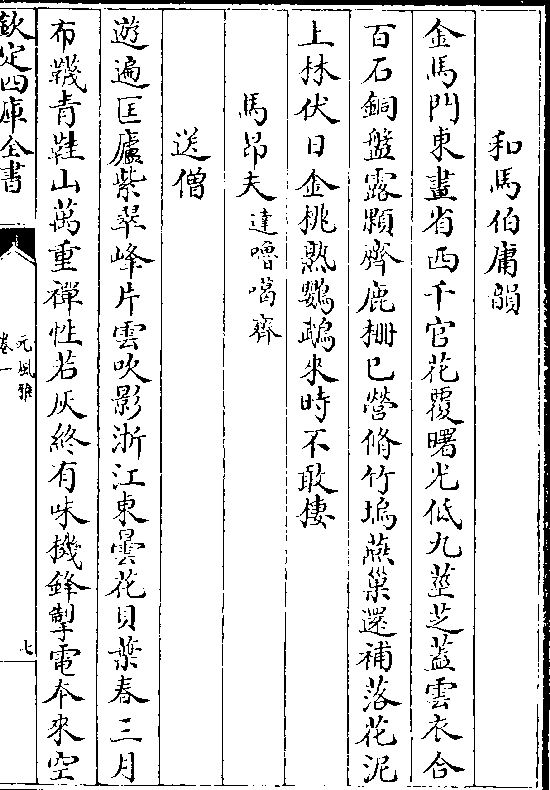 和馬伯庸韻
金馬門東畫省西千官花覆曙光低九莖芝蓋雲衣合
百石銅盤露顆齊鹿栅已營脩竹塢燕巢還補落花泥
上林伏日金桃熟鸚鵡來時不敢棲
馬昂夫達嚕噶齊
送僧
遊遍匡廬紫翠峰片雲吹影浙江東曇花貝葉春三月
布韈青鞋山萬重禪性若灰終有味機鋒掣電本來空
欽定四庫全書
元風雅
卷一
七